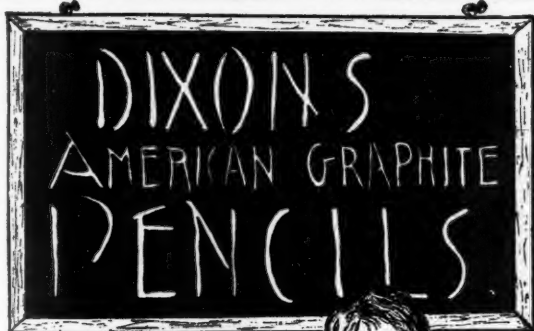 DIXONS
AMERICAN GRAPHITE
PENCILS.